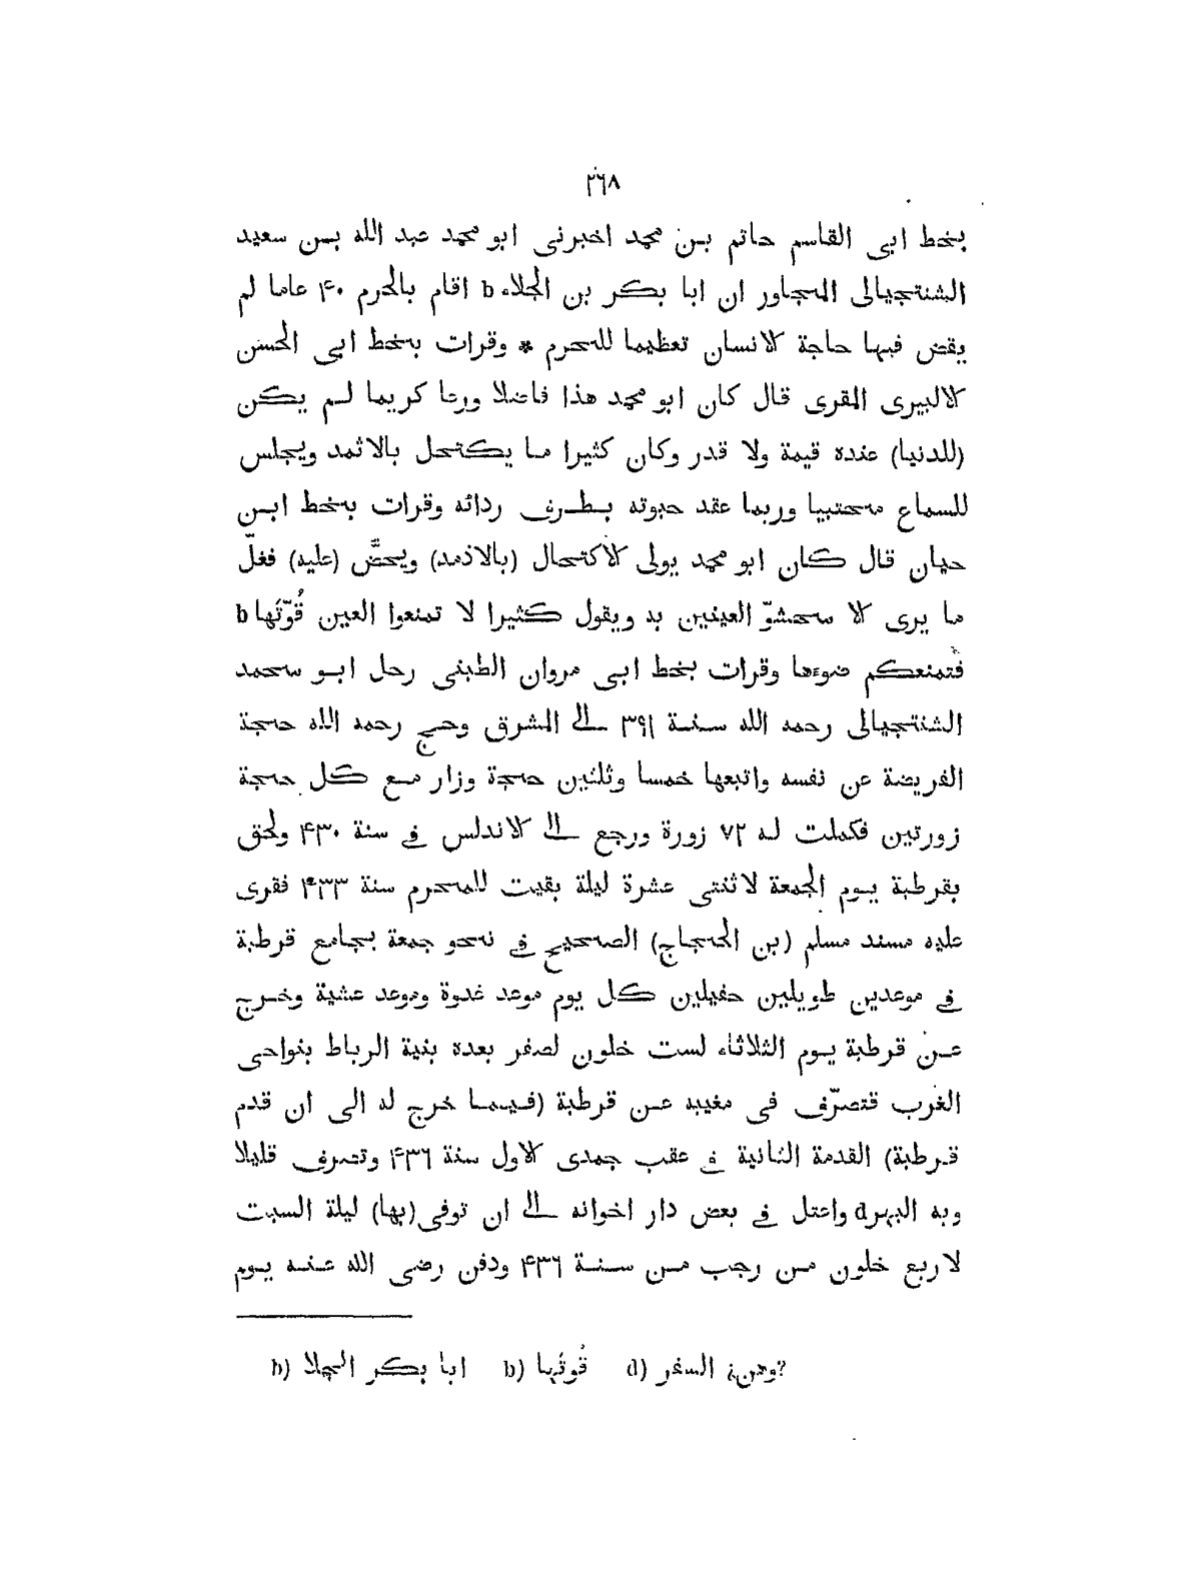 ٢٦٨
بخط ابى القاسم حاتم بن محمد اخبرنى ابو محمد عبد الله بن سعيد
الشنتجيالى المجاور ان ابا بكر بن الجلاء b اقام بالحرم ۴٠ عاما لم
يقض فيها حاجة الانسان تعظيما للحرم * وقرات بخط ابى الحسن
الالبيرى المقرى قال كان ابو محمد هذا فاضلا ورعا كريما لم يكن
(للدنيا) عنده قيمة ولا قدر وكان كثيرا ما يكتحل بالاثمد ويجلس
للسماع محتبيا وربما عقد حبوته بطرف ردائه وقرات بخط ابن
حيان قال كان ابو محمد يولى الاكتحال (بالاثمد) ويحضّ (عليه) فغلّ
ما يرى الا محشوّ العينين به ويقول كثيرا لا تمنعوا العين قُوّتَها b
فتمنعكم ضوءها وقرات بخط ابى مروان الطبنى رحل ابو محمد
الشنتجيالى رحمه الله سنة ٣٩١ الى المشرق وحج رحمه الله حجة
الفريضة عن نفسه واتبعها خمسا وثلثين حجة وزار مع كل حجة
زورتين فكملت له ٧٢ زورة ورجع الى الاندلس فى سنة ۴٣٠ ولحق
بقرطبة يوم الجمعة لاثنتى عشرة ليلة بقيت للمحرم سنة ۴٣٣ فقرى
عليه مسند مسلم (بن الحجاج) الصحيح فى نحو جمعة بجامع قرطبة
فى موعدين طويلين حفيلين كل يوم موعد غدوة وموعد عشية وخرج
عن قرطبة يوم الثلاثاء لست خلون لصفر بعده بنية الرباط بنواحى
الغرب فتصرّف فى مغيبه عن قرطبة (فيما خرج له الى ان قدم
قرطبة) القدمة الثانية فى عقب جمدى الاول سنة ۴٣٦ وتصرف قليلا
وبه البهر d واعتل فى بعض دار اخوانه الى ان توفى (بها) ليلة السبت
لاربع خلون من رجب من سنة ۴٣٦ ودفن رضى الله عنه يوم
b) ابا بكر الجلا b) قُوتَها d) السفر